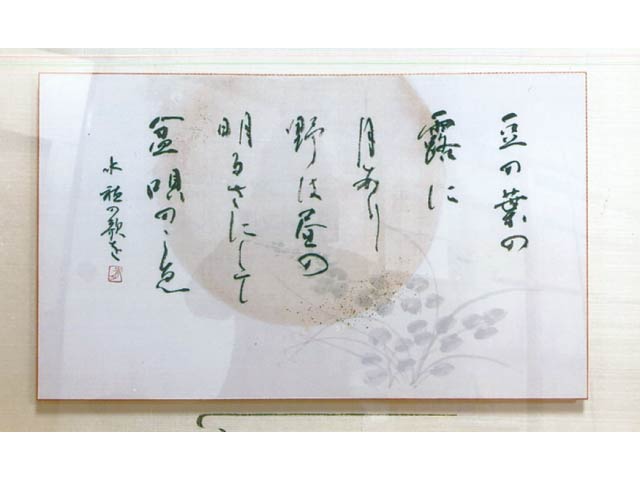 豆の葉の
露に
月あり
野は昼の
明るさにして
盆唄のこゑ
水穂の歌を